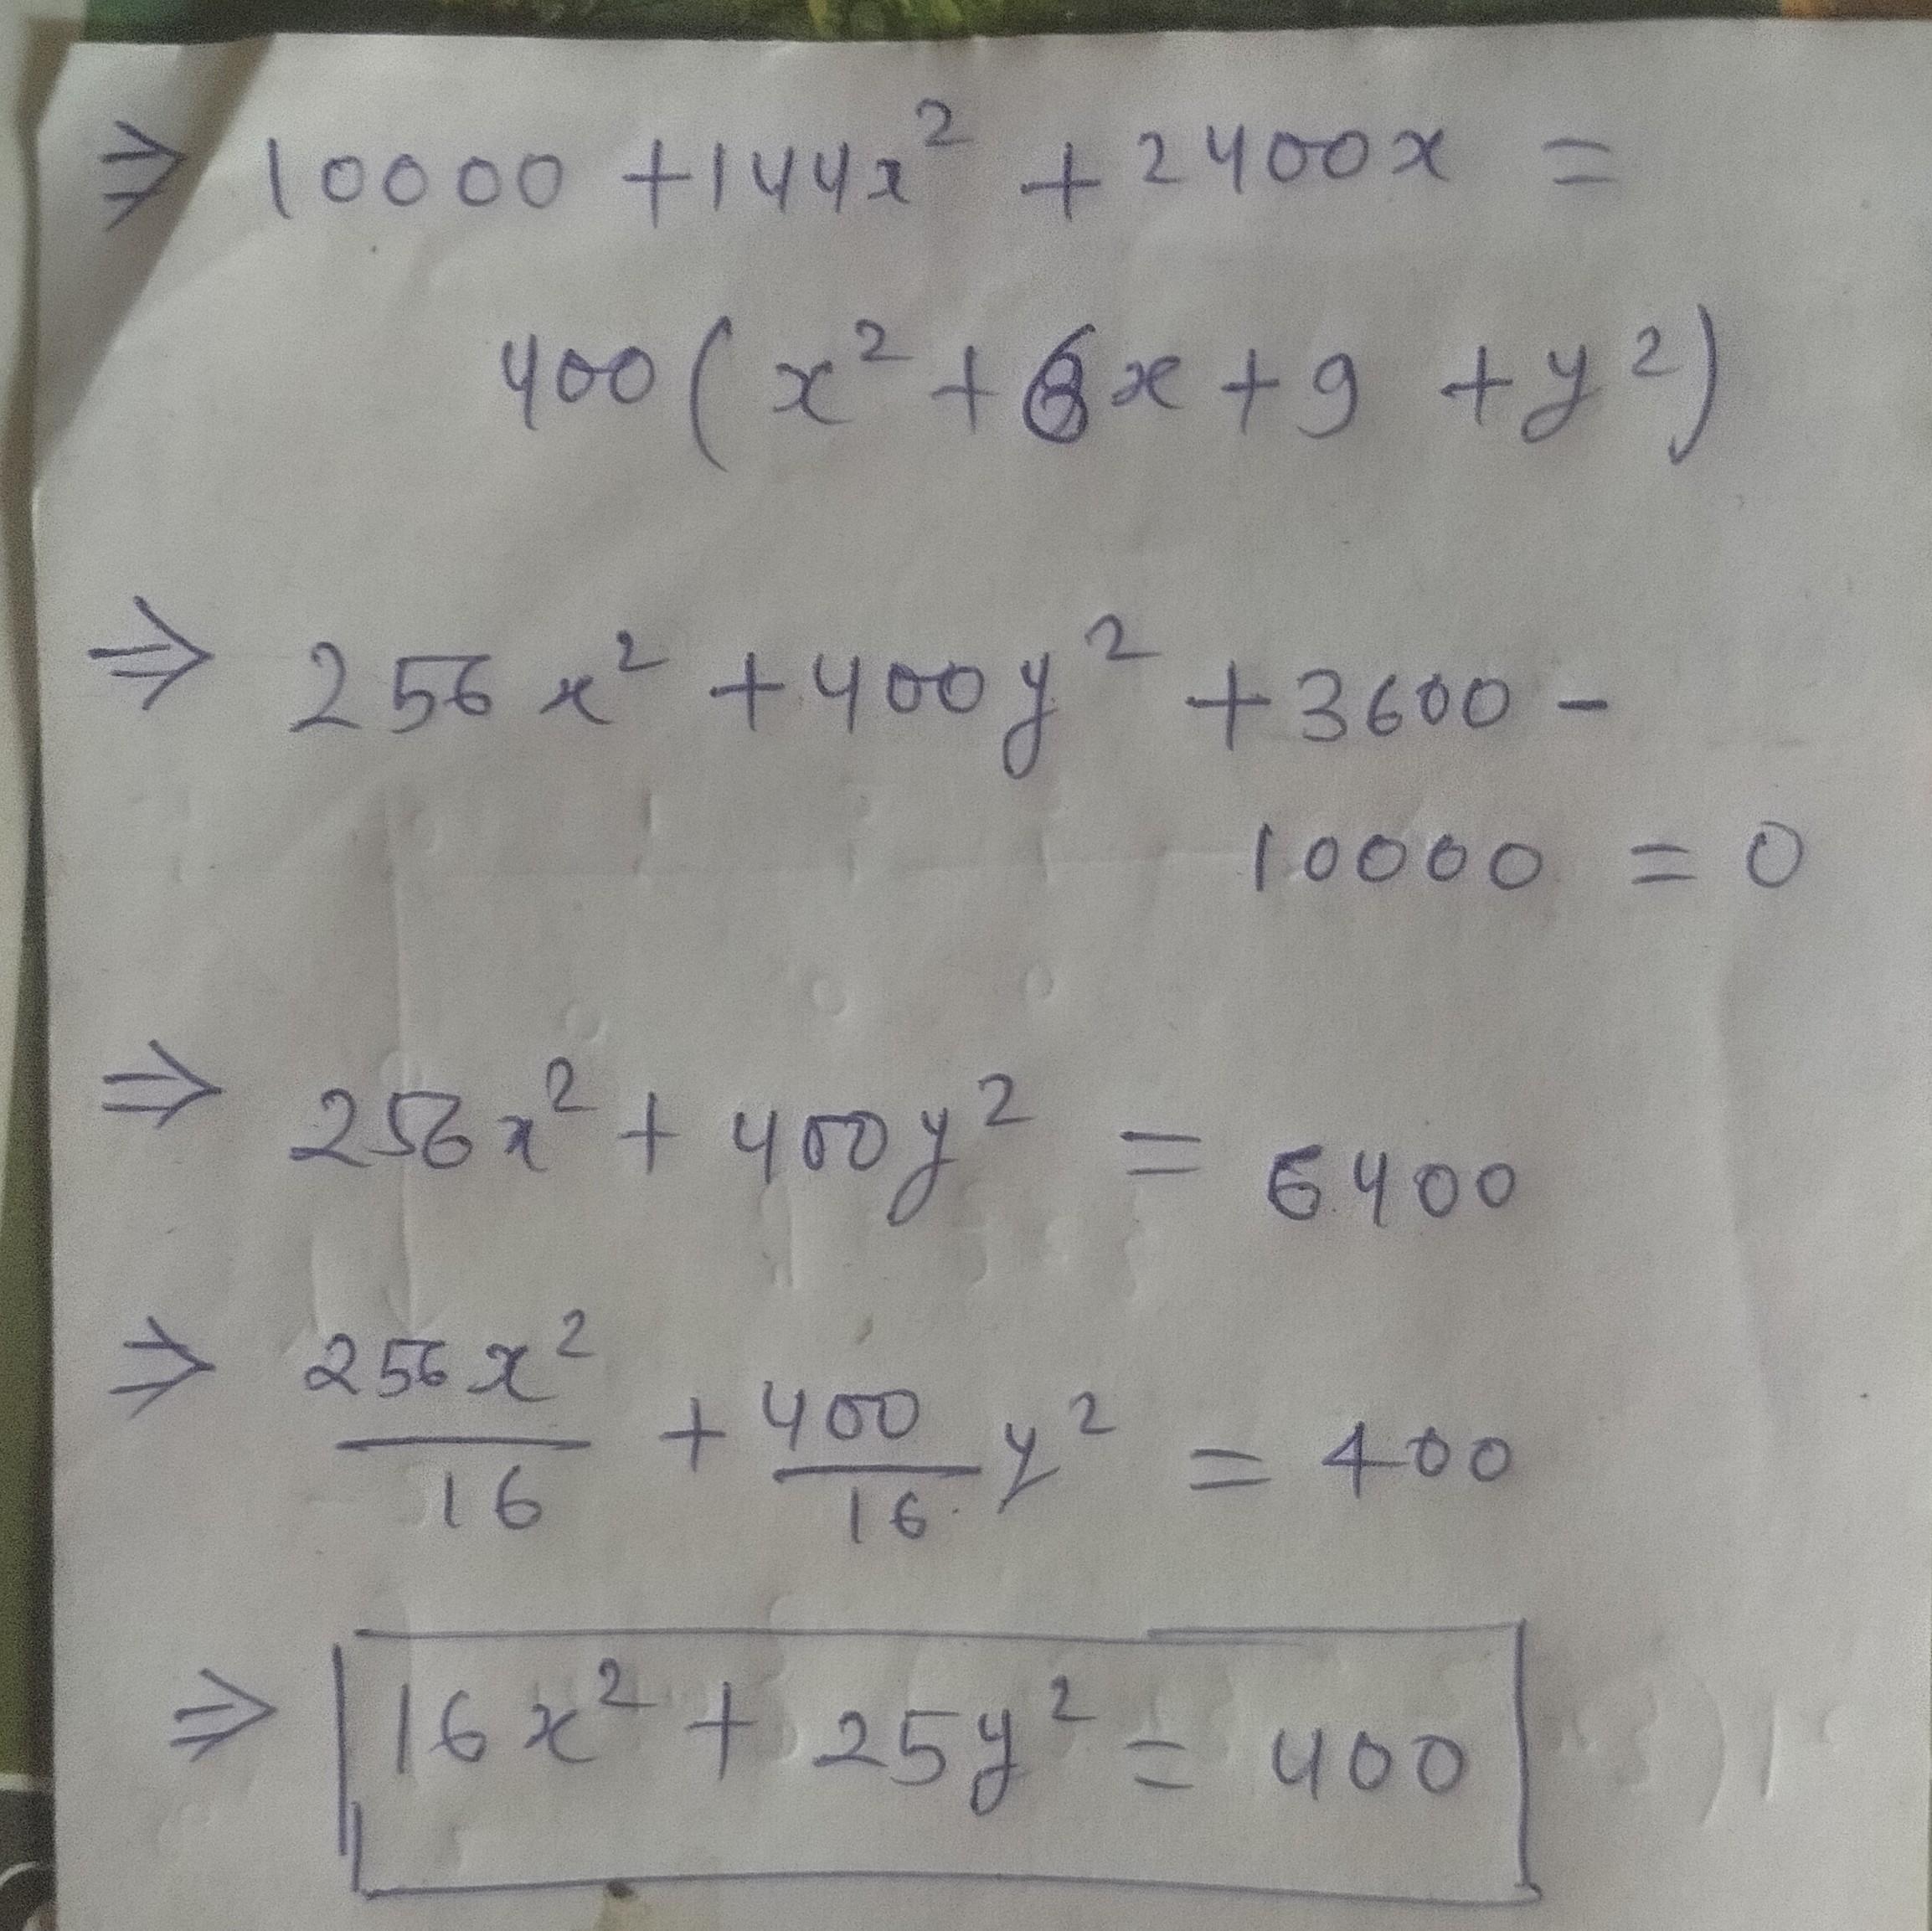 ⇒ 10000 + 144x² + 2400x =
400(x² + 6x + 9 + y²)
⇒ 256x² + 400y² + 3600 -
10000 = 0
⇒ 256x² + 400y² = 6400
⇒ 256x²/16 + 400/16 y² = 400
⇒ 16x² + 25y² = 400